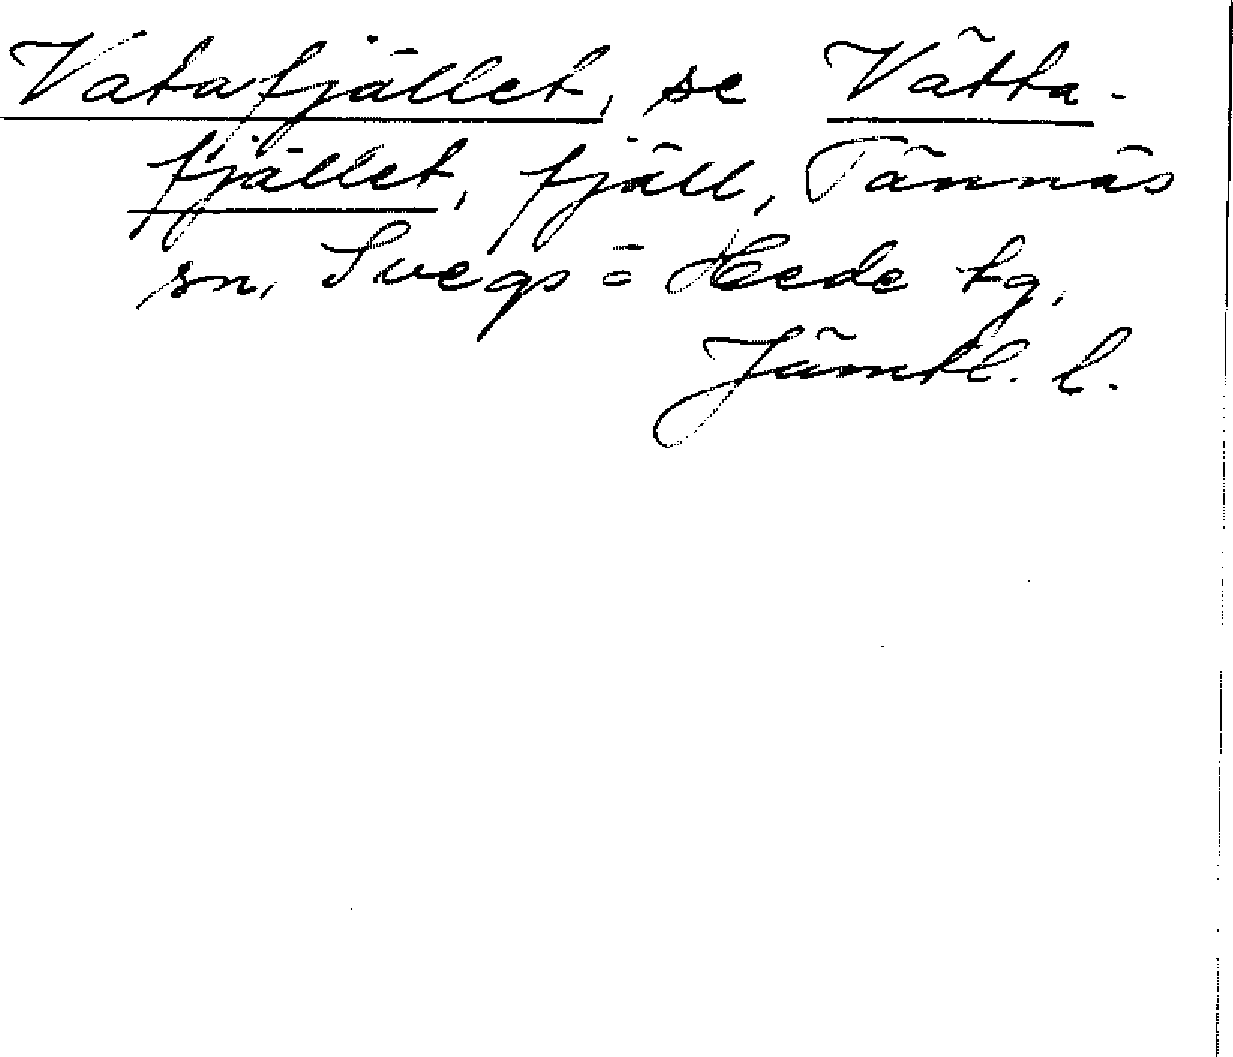 Vatafjället, se Vätta-
fjället, fjäll, Tännäs
sn, Svegs = Hede tg,
Jämtl. l.